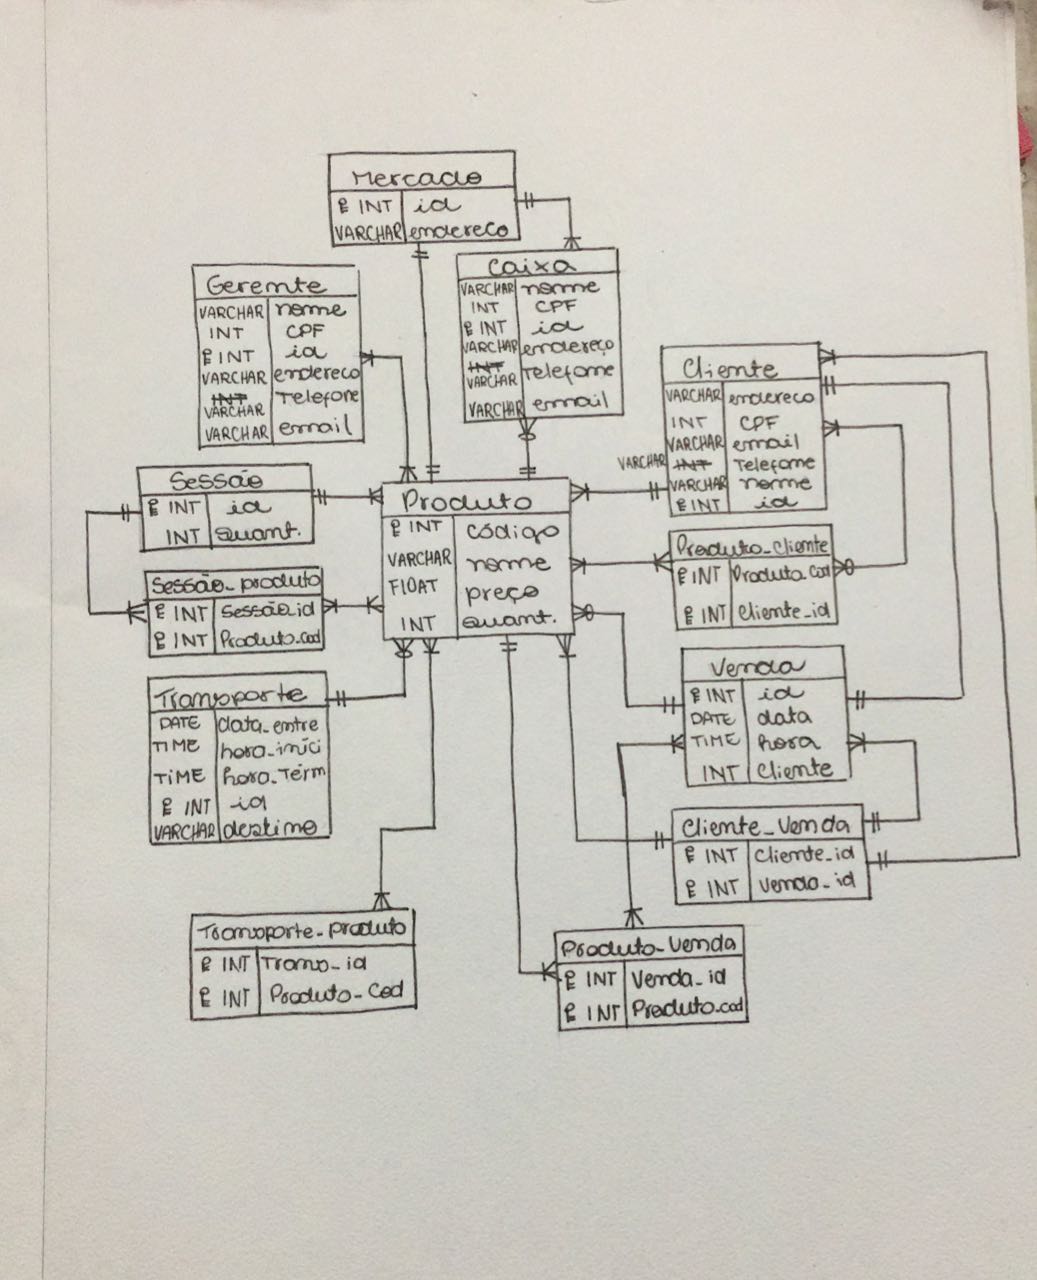 Mercado
INT id
VARCHAR endereco
Gerente
VARCHAR nome
INT CPF
INT id
VARCHAR endereco
INT
VARCHAR Telefone
VARCHAR email
Caixa
VARCHAR nome
INT CPF
INT id
VARCHAR endereço
INT
VARCHAR Telefone
VARCHAR email
Cliente
VARCHAR endereco
INT CPF
VARCHAR email
VARCHAR INT Telefone
VARCHAR nome
INT id
Sessão
INT id
INT quant.
Produto
INT código
VARCHAR nome
FlOAT preço
INT quant.
Produto_cliente
INT Produto.cod
INT cliente_id
Sessão_produto
INT sessão_id
INT Produto.cod
Venda
INT id
DATE data
TIME hora
INT cliente
Transporte
DATE data_entre
TIME hora_iníci
TiME hora_Térm
INT id
VARCHAR destino
Cliente_Venda
INT Cliente_id
INT Venda_id
Transporte_produto
INT Trans_id
INT Produto_Cod
Produto_Venda
INT Venda_id
INT Produto.cod